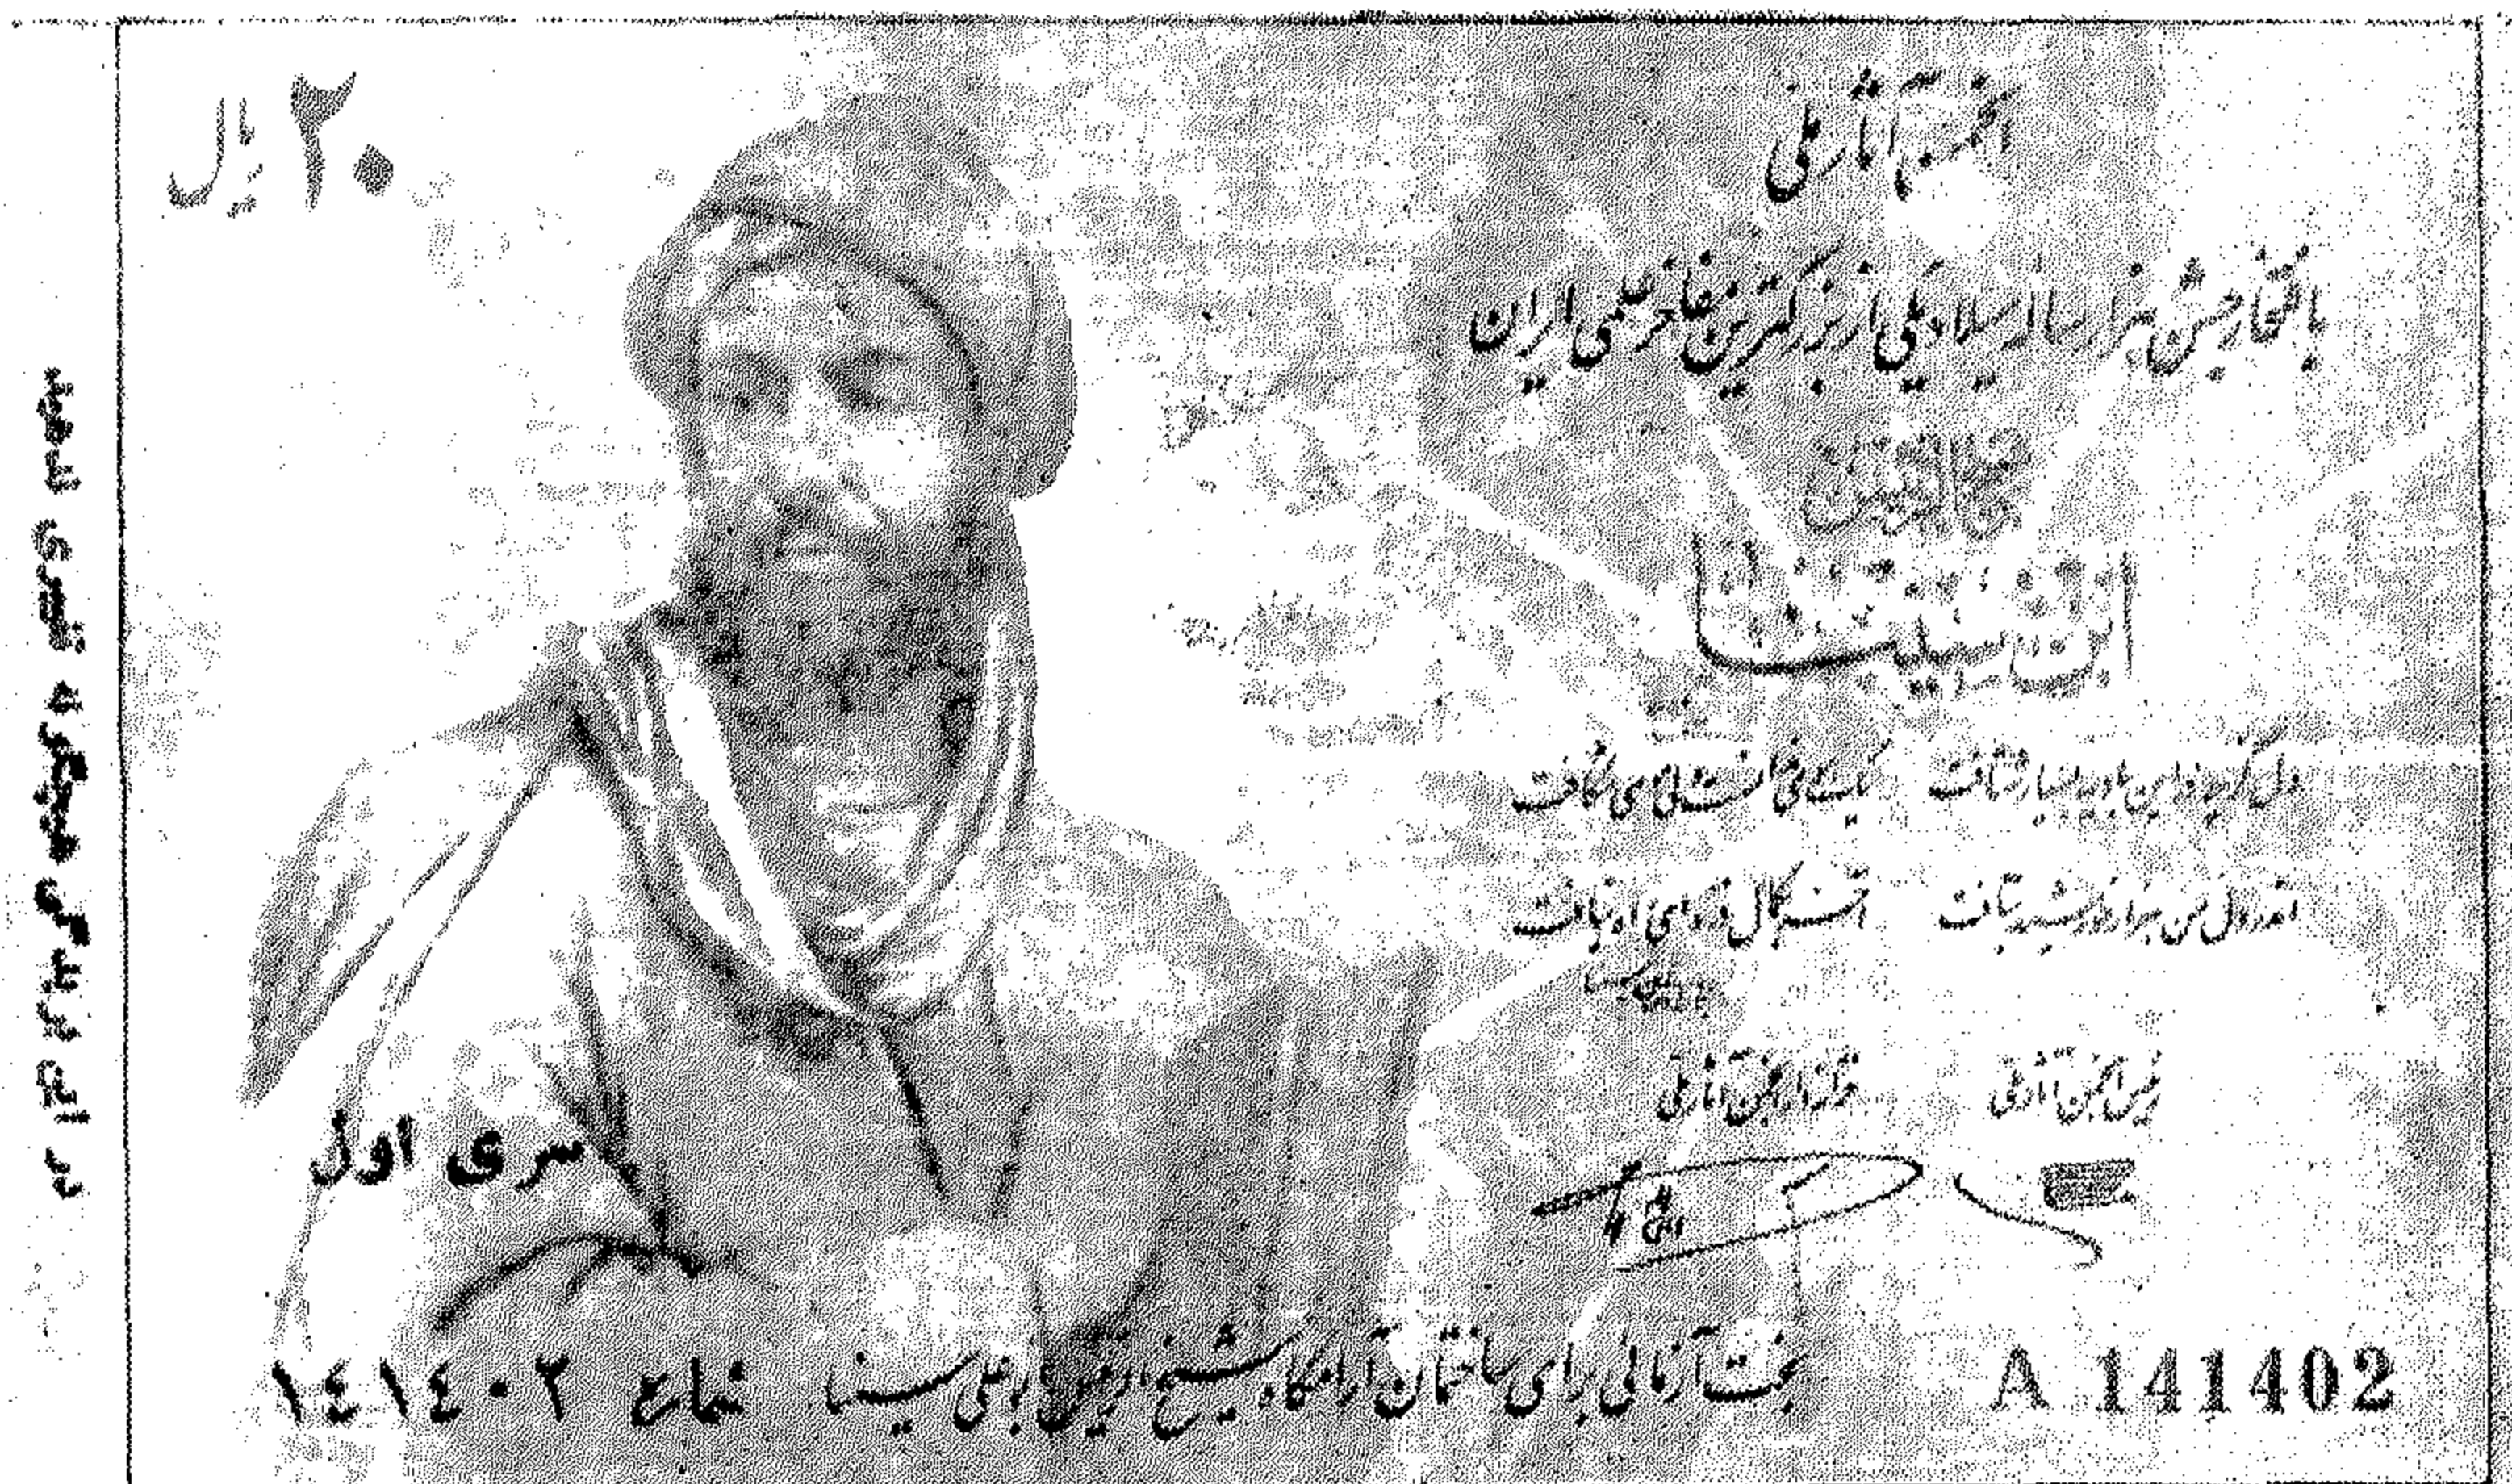 ۲۰ ریال
انجمن آثار ملی
بافتخار جشن هزارساله میلاد یکی از بزرگترین مفاخر علمی ایران
شیخ الرئیس
ابن سینا
دل گرچه در این بادیه بسیار شتافت یک موی ندانست ولی موی شکافت
اندر دل من هزار خورشید بتافت آخر بکمال ذره‌ای راه نیافت
ابن سینا
رئیس انجمن آثار ملی خزانه‌دار انجمن آثار ملی
سری اول
بخت آزمائی برای ساختمان آرامگاه شیخ الرئیس ابوعلی سینا شماره ۱٤۱٤۰۲
A 141402